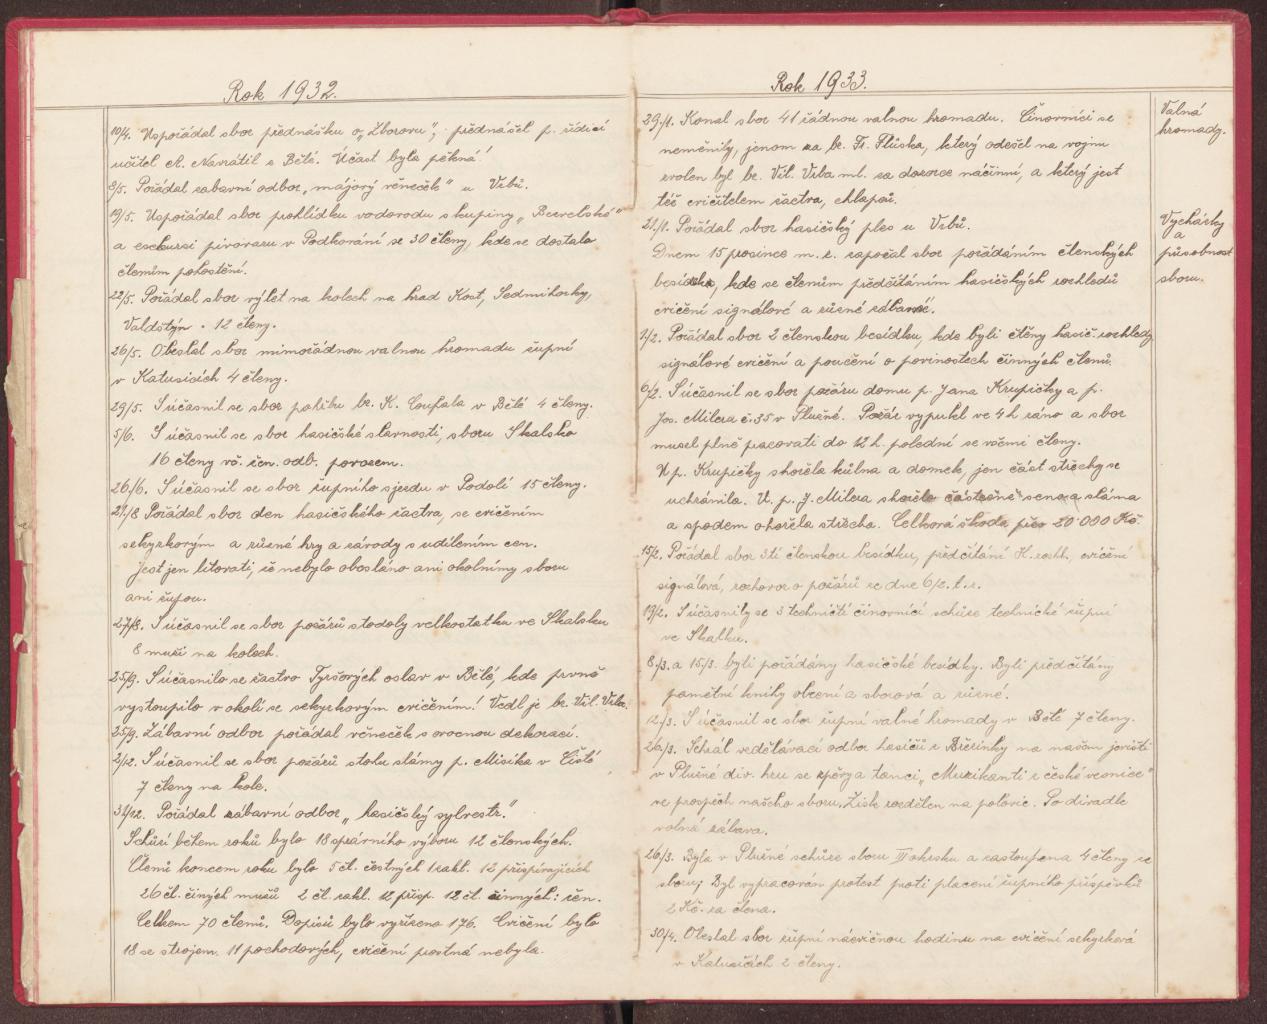 Rok 1932.
10/4. Uspořádal sbor přednášku o „Zborovu“, přednášel p. řídící
učitel A. Navrátil z Bělé. Účast byla pěkná!
8/5. Pořádal zábavní odbor „májový věneček“ u Vrbů.
19/5. Uspořádal sbor prohlídku vodovodu skupiny
a exkursi pivovaru v Podkováni se 30 členy, kde se dostalo
členům pohostění.
22/5. Pořádal sbor výlet na kolech na hrad Kost, Sedmihorky,
Valdštýn. 12 členy.
26/5. Obeslal sbor mimořádnou valnou hromadu župní
v Katusicích 4 členy.
29/5. Súčasnil se sbor pohřbu br. K. Coufala v Bělé 4 členy.
5/6. Súčasnil se sbor hasičské slavnosti, sboru Skalsko
16 členy vč. žen. odb. povozem.
26./6. Súčasnil se sbor župního sjezdu v Podolí 15 členy.
21/8 Pořádal sbor den hasičského žactva, se cvičením
sekyrkovým a různé hry a závody s udílením cen.
Jest jen litovati, že nebylo obesláno ani okolnímy sbory
ani župou.
27/8. Súčasnil se sbor požárů stodoly velkostatku ve Skalsku
8 muži na kolech.
25/9. Súčasnilo se žactvo Tyršových oslav v Bělé, kde prvně
vystoupilo v okolí se sekyrkovým cvičením! Vedl je br. Vil. Vrba.
25/9. Zábavní odbor pořádal věneček s ovocnou dekorací.
2/12. Súčasnil se sbor požárů stohu slámy p. Misíka v Čisté
7 členy na kole.
31/12. Pořádal zábavní odbor „hasičský sylvestr.“
Schůzí během roků bylo 18 správního výboru 12 členských.
Členů koncem roku bylo 5 čl. čestných 1 zakl. 12 přispívajících
26 čl. činých mužů 2 čl. zakl. 12 přisp. 12 čl. činných: žen.
Celkem 70 členů. Dopisů bylo vyřízeno 176. Cvičení bylo
18 se strojem. 11 pochodových, cvičení prostná nebyla.
Rok 1933.
29./1. Konal sbor 41 řádnou valnou hromadu. Činovníci se
neměnily, jenom za br. Fr. Flúska, který odešel na vojnu
zvolen byl br. Vil. Vrba ml. za dozorce náčinní, a který jest
též cvičitelem žactva, chlapců.
21./1. Pořádal sbor hasičský ples u Vrbů.
Dnem 15 prosince m. r. započal sbor pořádáním členských
besídek, kde se členům předčítáním hasičských rozhledů
cvičení signálové a různé
1/2. Pořádal sbor 2 členskou besídku, kde byli čtěny hasič. rozhledy
signálové cvičení a poučení o povinostech činných členů.
6/2. Súčasnil se sbor požáru domu p. Jana Krupičky a p.
Jos. Milera č. 35 v Plužné. Požár vypukl ve 4 h ráno a sbor
musel plně pracovati do 12 h. polední se všemi členy.
U p. Krupičky shořela kůlna a domek, jen část střechy se
uchránila. U. p. J. Milera shořelo částečně seno a sláma
a spodem ohořela střecha. Celková škoda přes 20 000 Kč.
15/2. Pořádal sbor 3tí členskou besídku, předčítání H. rozh., cvičení
signálová, rozhovor o požárů ze dne 6/2. t. r.
19/2. Súčasnily se 3 techničtí činovníci schůze technické župní
ve Skalku.
8./3. a 15/3. byli pořádány hasičské besídky. Byli předčítány
pamětní knihy obecní a sborová a různé.
12/3. Súčasnil se sbor župní valné hromady v Bělé 7 členy.
26/3. Sehrál vzdělávací odbor hasičů z Březinky na našem jevišti
v Plužné div. hru se zpěvy a tanci „Muzikanti z české vesnice“
ve prospěch našeho sboru. Zisk rozdělen na polovic. Po divadle
volná zábava.
26/3. Byla v Plužné schůze sboru III okrsku a zastoupena 4 členy ze
sboru; Byl vypracován protest proti placení župního příspěvků
2 Kč. za člena.
30/4. Obeslal sbor župní nácvičnou hodinu na cvičení sekyrková
v Katusicích 2 členy.
Valná
hromada.
Vycházky
a
působnost
sboru.